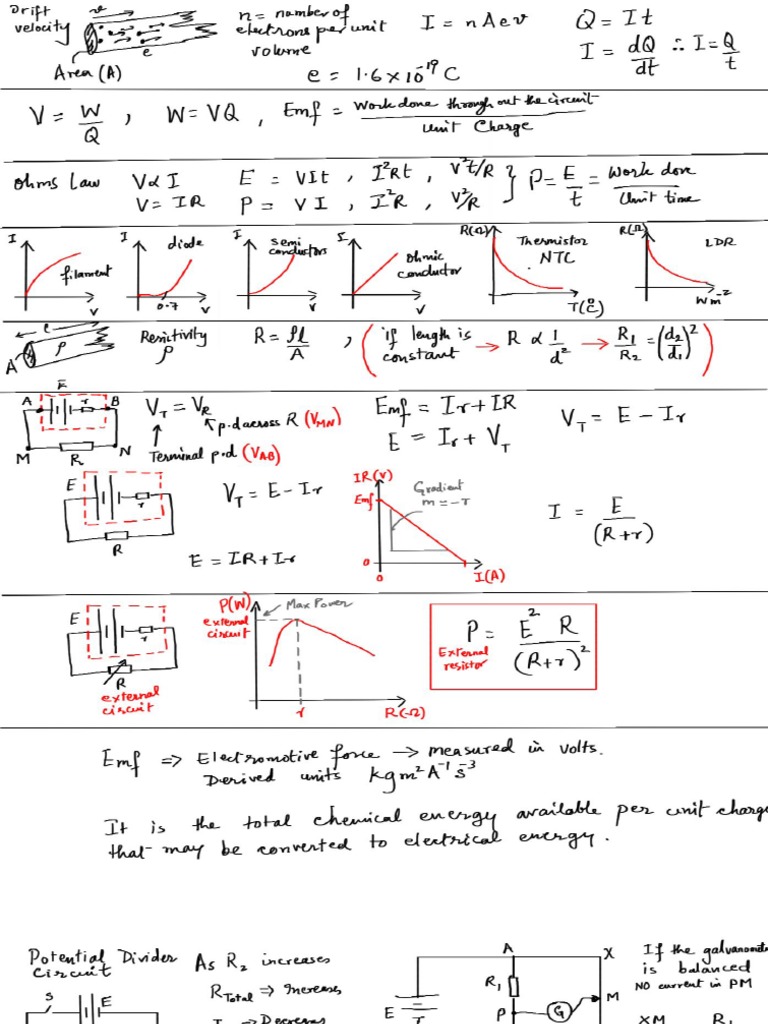 Drift velocity
v
e
Area (A)
n = number of electrons per unit volume
I = nAev
e = 1.6×10⁻¹⁹ C
Q = It
I = dQ/dt ∴ I = Q/t
V = W/Q , W = VQ , Emf = Work done through out the circuit / Unit Charge
Ohms Law V ∝ I
V = IR
E = VIt , I²Rt , V²t/R
P = VI , I²R , V²/R
} P = E/t = Work done / Unit time
I filament V
I diode 0.7 V
I semi conductors V
I ohmic conductor V
R(Ω) Thermistor NTC T(°C)
R(Ω) LDR Wm⁻²
l
A ρ
Resitivity ρ
R = ρl/A , ( if length is constant → R ∝ 1/d² → R₁/R₂ = (d₂/d₁)² )
E
A r B
M R N
V_T = V_R
p.d across R (V_MN)
Terminal p.d (V_AB)
Emf = Ir + IR
E = Ir + V_T
V_T = E - Ir
E r R
V_T = E - Ir
E = IR + Ir
IR(V)
Emf
Gradient m = -r
0 0 I(A)
I = E/(R+r)
E r R
external circuit
P(W)
external circuit
Max Power
r R(Ω)
P = E² R/(R+r)²
External resistor
Emf => Electromotive force → measured in volts.
Derived units kgm²A⁻¹s⁻³
It is the total chemical energy available per unit charge
that may be converted to electrical energy.
Potential Divider Circuit
S E
As R₂ increases
R_Total => increases
I → Decreases
A X
R₁
P G M
E r
If the galvanomet
is balanced
NO current in PM
XM R₁